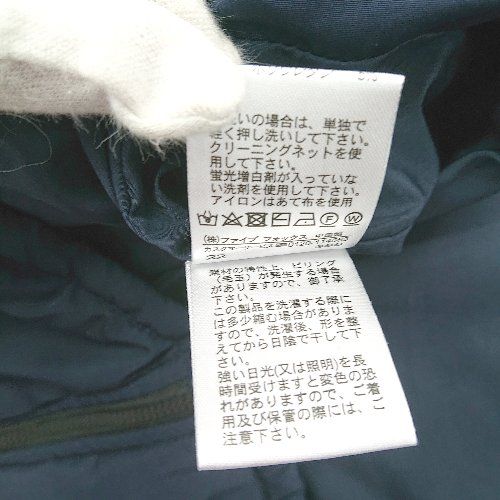 いの場合は、単独で
軽く押し洗いして下さい。
クリーニングネットを使
用して下さい。
蛍光増白剤が入っていな
い洗剤を使用して下さい。
アイロンはあて布を使用
(株)ファイブ フォックス 中国製
素材の特性上、ピリング
(毛玉)が発生する場合
がありますので、御了承
下さい。
この製品を洗濯する際に
は多少縮む場合がありま
すので、洗濯後、形を整
えてから日陰で干して下
さい。
強い日光(又は照明)を長
時間受けますと変色の恐
れがありますので、ご着
用及び保管の際には、ご
注意下さい。